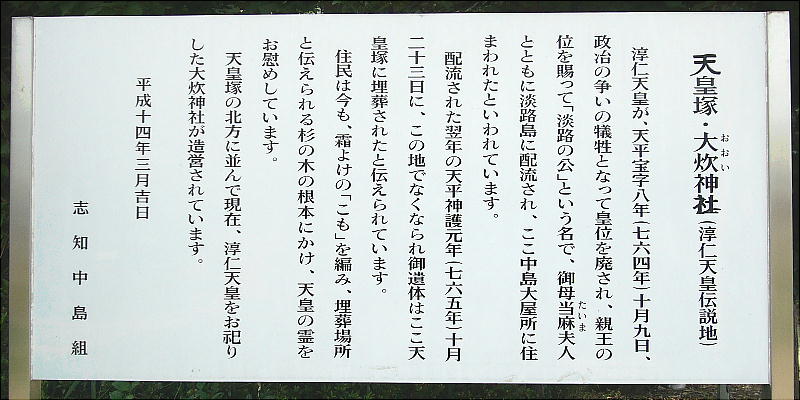 天皇塚・大炊神社(淳仁天皇伝説地)
おおい
淳仁天皇が、天平宝字八年(七六四年)十月九日、
政治の争いの犠牲となって皇位を廃され、親王の
位を賜って「淡路の公」という名で、御母当麻夫人
たいま
とともに淡路島に配流され、ここ中島大屋所に住
まわれたといわれています。
配流された翌年の天平神護元年(七六五年)十月
二十三日に、この地でなくなられ御遺体はここ天
皇塚に埋葬されたと伝えられています。
住民は今も、霜よけの「こも」を編み、埋葬場所
と伝えられる杉の木の根本にかけ、天皇の霊を
お慰めしています。
天皇塚の北方に並んで現在、淳仁天皇をお祀り
した大炊神社が造営されています。
平成十四年三月吉日
志知中島組